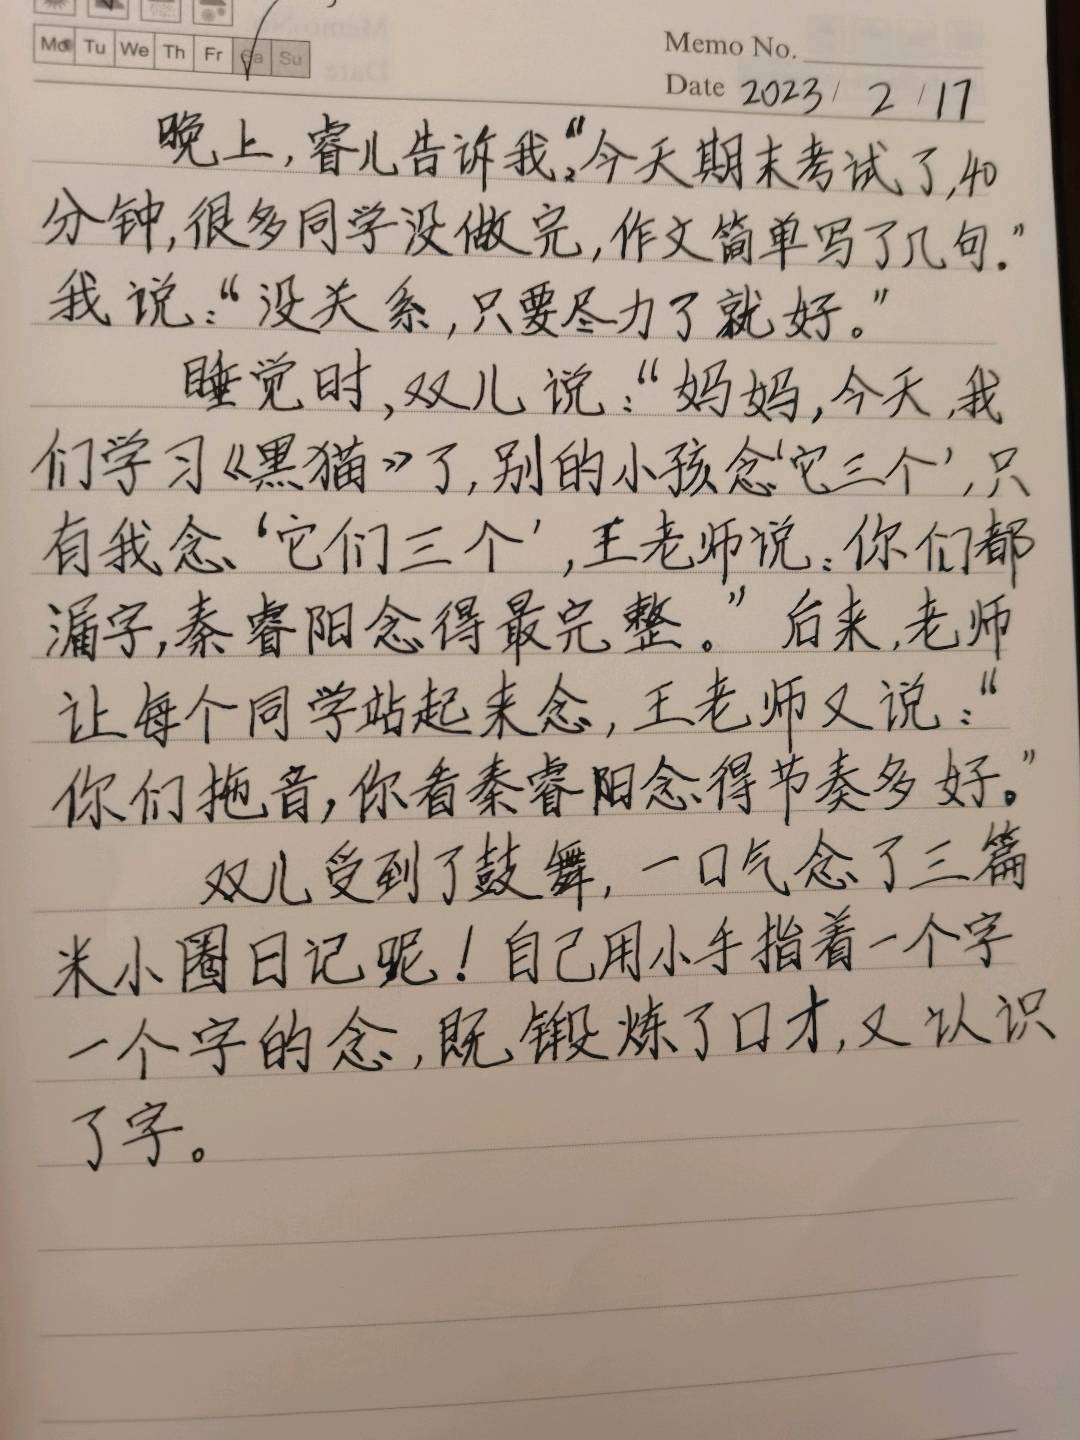 Mo Tu We Th Fr Sa Su
Memo No.
Date 2023 / 2 / 17
晚上，睿儿告诉我：“今天期末考试了，40
分钟，很多同学没做完，作文简单写了几句。”
我说：“没关系，只要尽力了就好。”
睡觉时，双儿说：“妈妈，今天，我
们学习《黑猫》了，别的小孩念‘它三个’，只
有我念、‘它们三个’，王老师说：你们都
漏字，秦睿阳念得最完整。”后来，老师
让每个同学站起来念，王老师又说：“
你们拖音，你看秦睿阳念得节奏多好。”
双儿受到了鼓舞，一口气念了三篇
米小圈日记呢！自己用小手指着一个字
一个字的念，既锻炼了口才，又认识
了字。